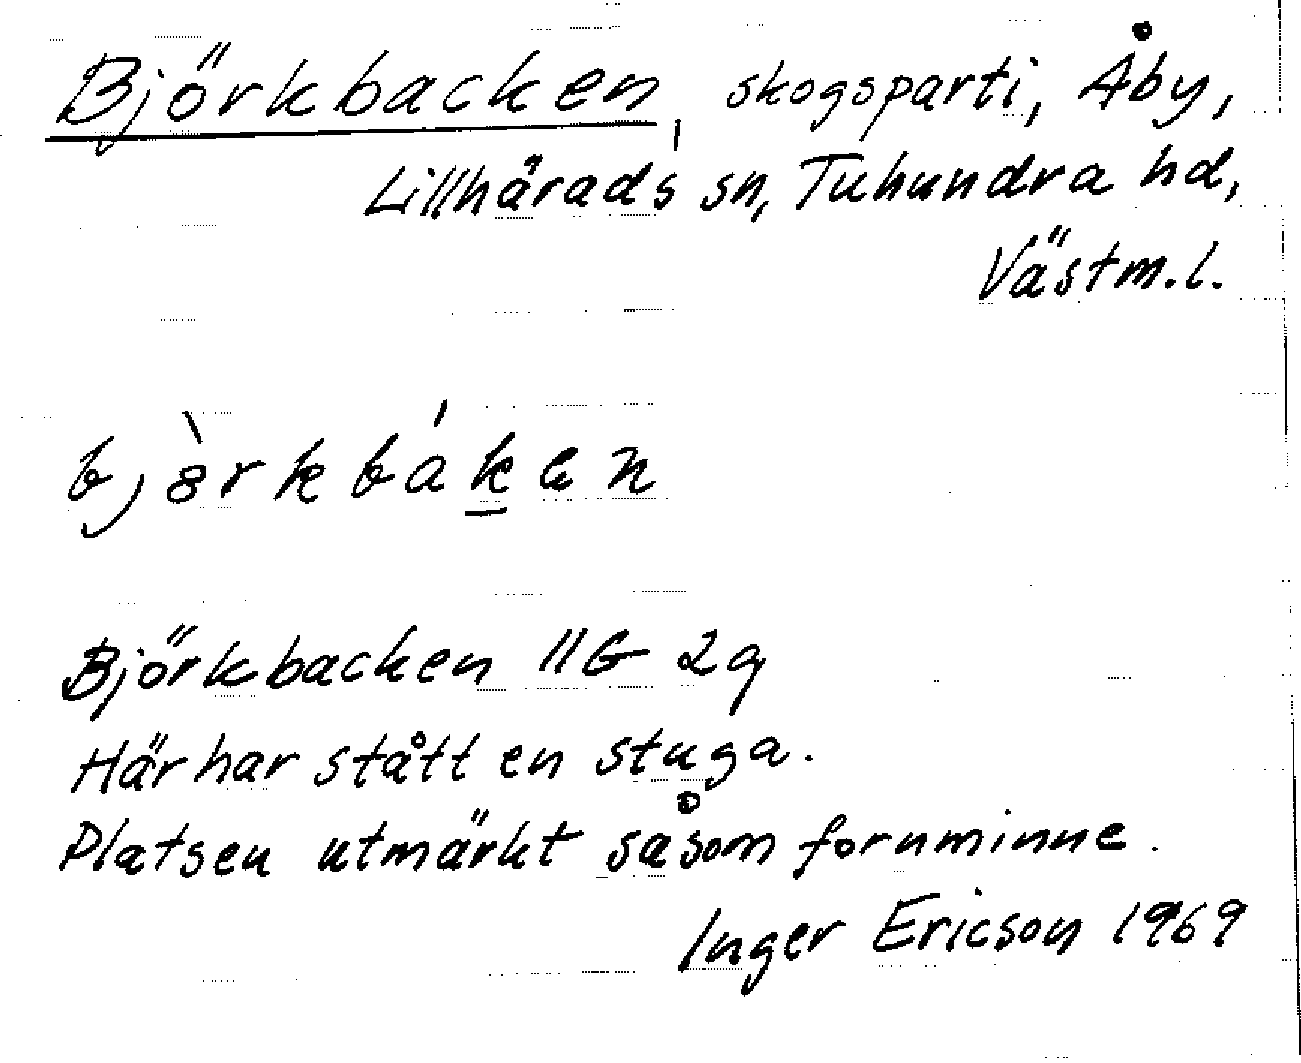 Björkbacken, skogsparti, Åby,
Lillhärads sn, Tuhundra hd,
Västm.l.
Björkbacken 11G 2g
Här har stått en stuga.
Platsen utmärkt såsom fornminne.
Inger Ericson 1969